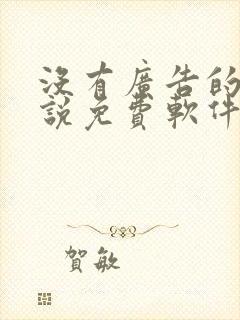 沒有廣告的
說免費軟件
賀敏